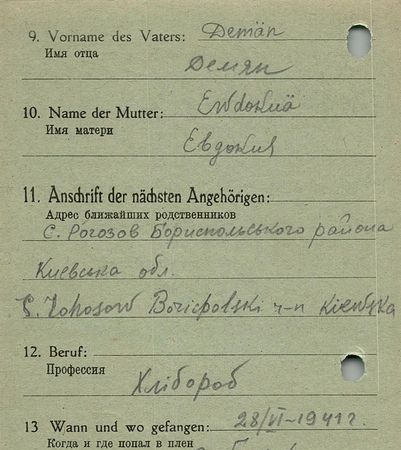 9. Vorname des Vaters: Demän
Имя отца
Демян
10. Name der Mutter: Ewdokiä
Имя матери
Евдокия
11. Anschrift der nächsten Angehörigen:
Адрес ближайших родственников
С. Рогозов Бориспольського района
Киевська обл.
S. Rohosow Borispolski r-n Kiewska
12. Beruf:
Профессия
Хлібороб
13 Wann und wo gefangen: 28/VI-1941 г.
Когда и где попал в плен